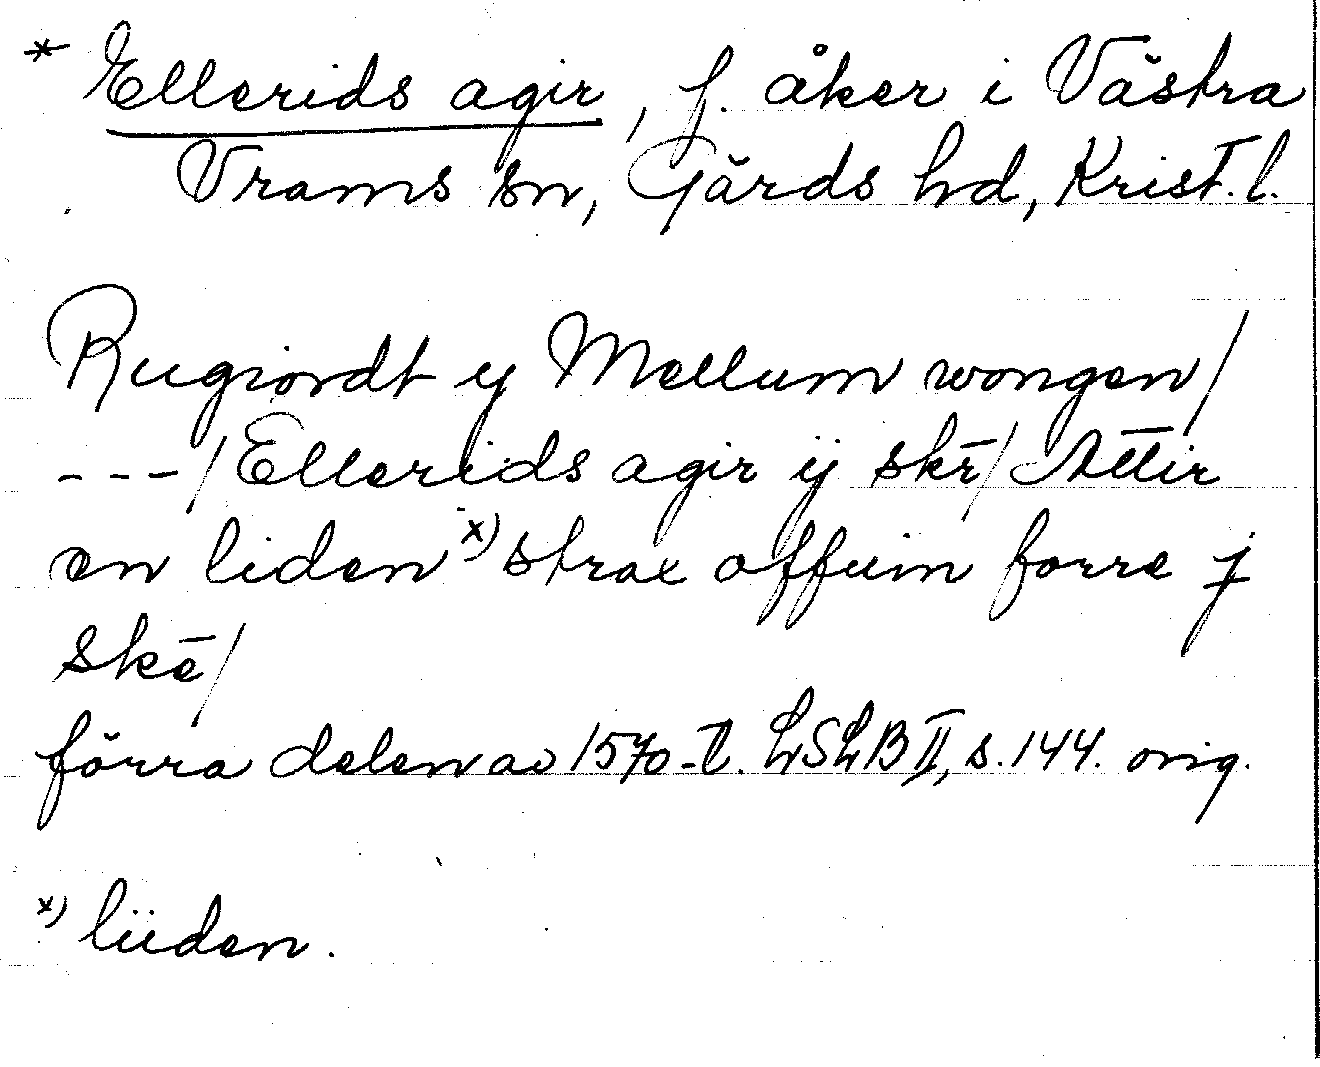 * Ellerids agir, f. åker i Västra
Vrams sn, Gärds hd, Krist. l.
Rugiordt y Mellum wongen/
---/ Ellerids agir ij skr̄/ Attir
en liden x) strax offuin forre j
skē/
förra delen av 1570-t. LSLB II, s. 144. orig.
x) liiden.